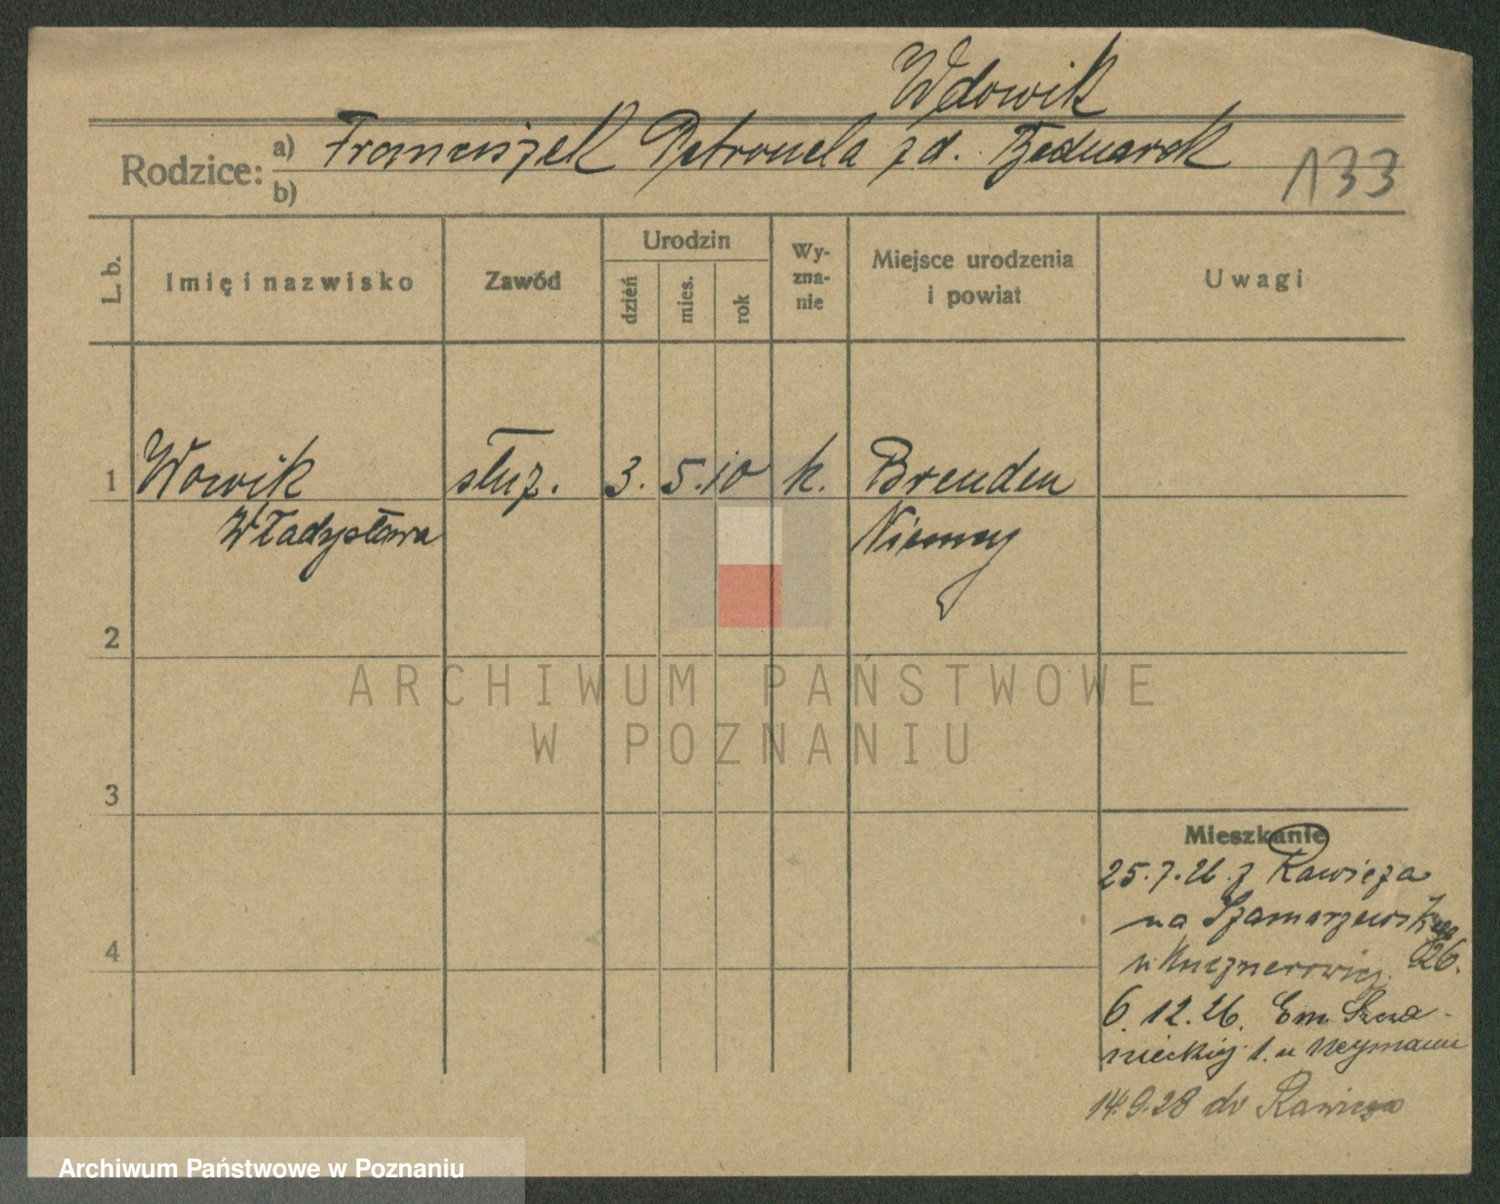 Wdowik
Rodzice: a) Franciszek Petronela z d. Bednarek
b)
133
L. b.
Imię i nazwisko
Zawód
Urodzin
dzień
mies.
rok
Wy-
zna-
nie
Miejsce urodzenia
i powiat
Uwagi
1 Wowik służ. 3. 5. 10 k. Brenden
Władysława Niemcy
2
ARCHIWUM PAŃSTWOWE
W POZNANIU
3
4
Mieszkanie
25.7.26. z Rawicza
na Szamarzewskiego
26.
u
6.12.26. Em. Szcza-
nieckiej 1. u Neymann
14.9.28 do Rawicza
Archiwum Państwowe w Poznaniu